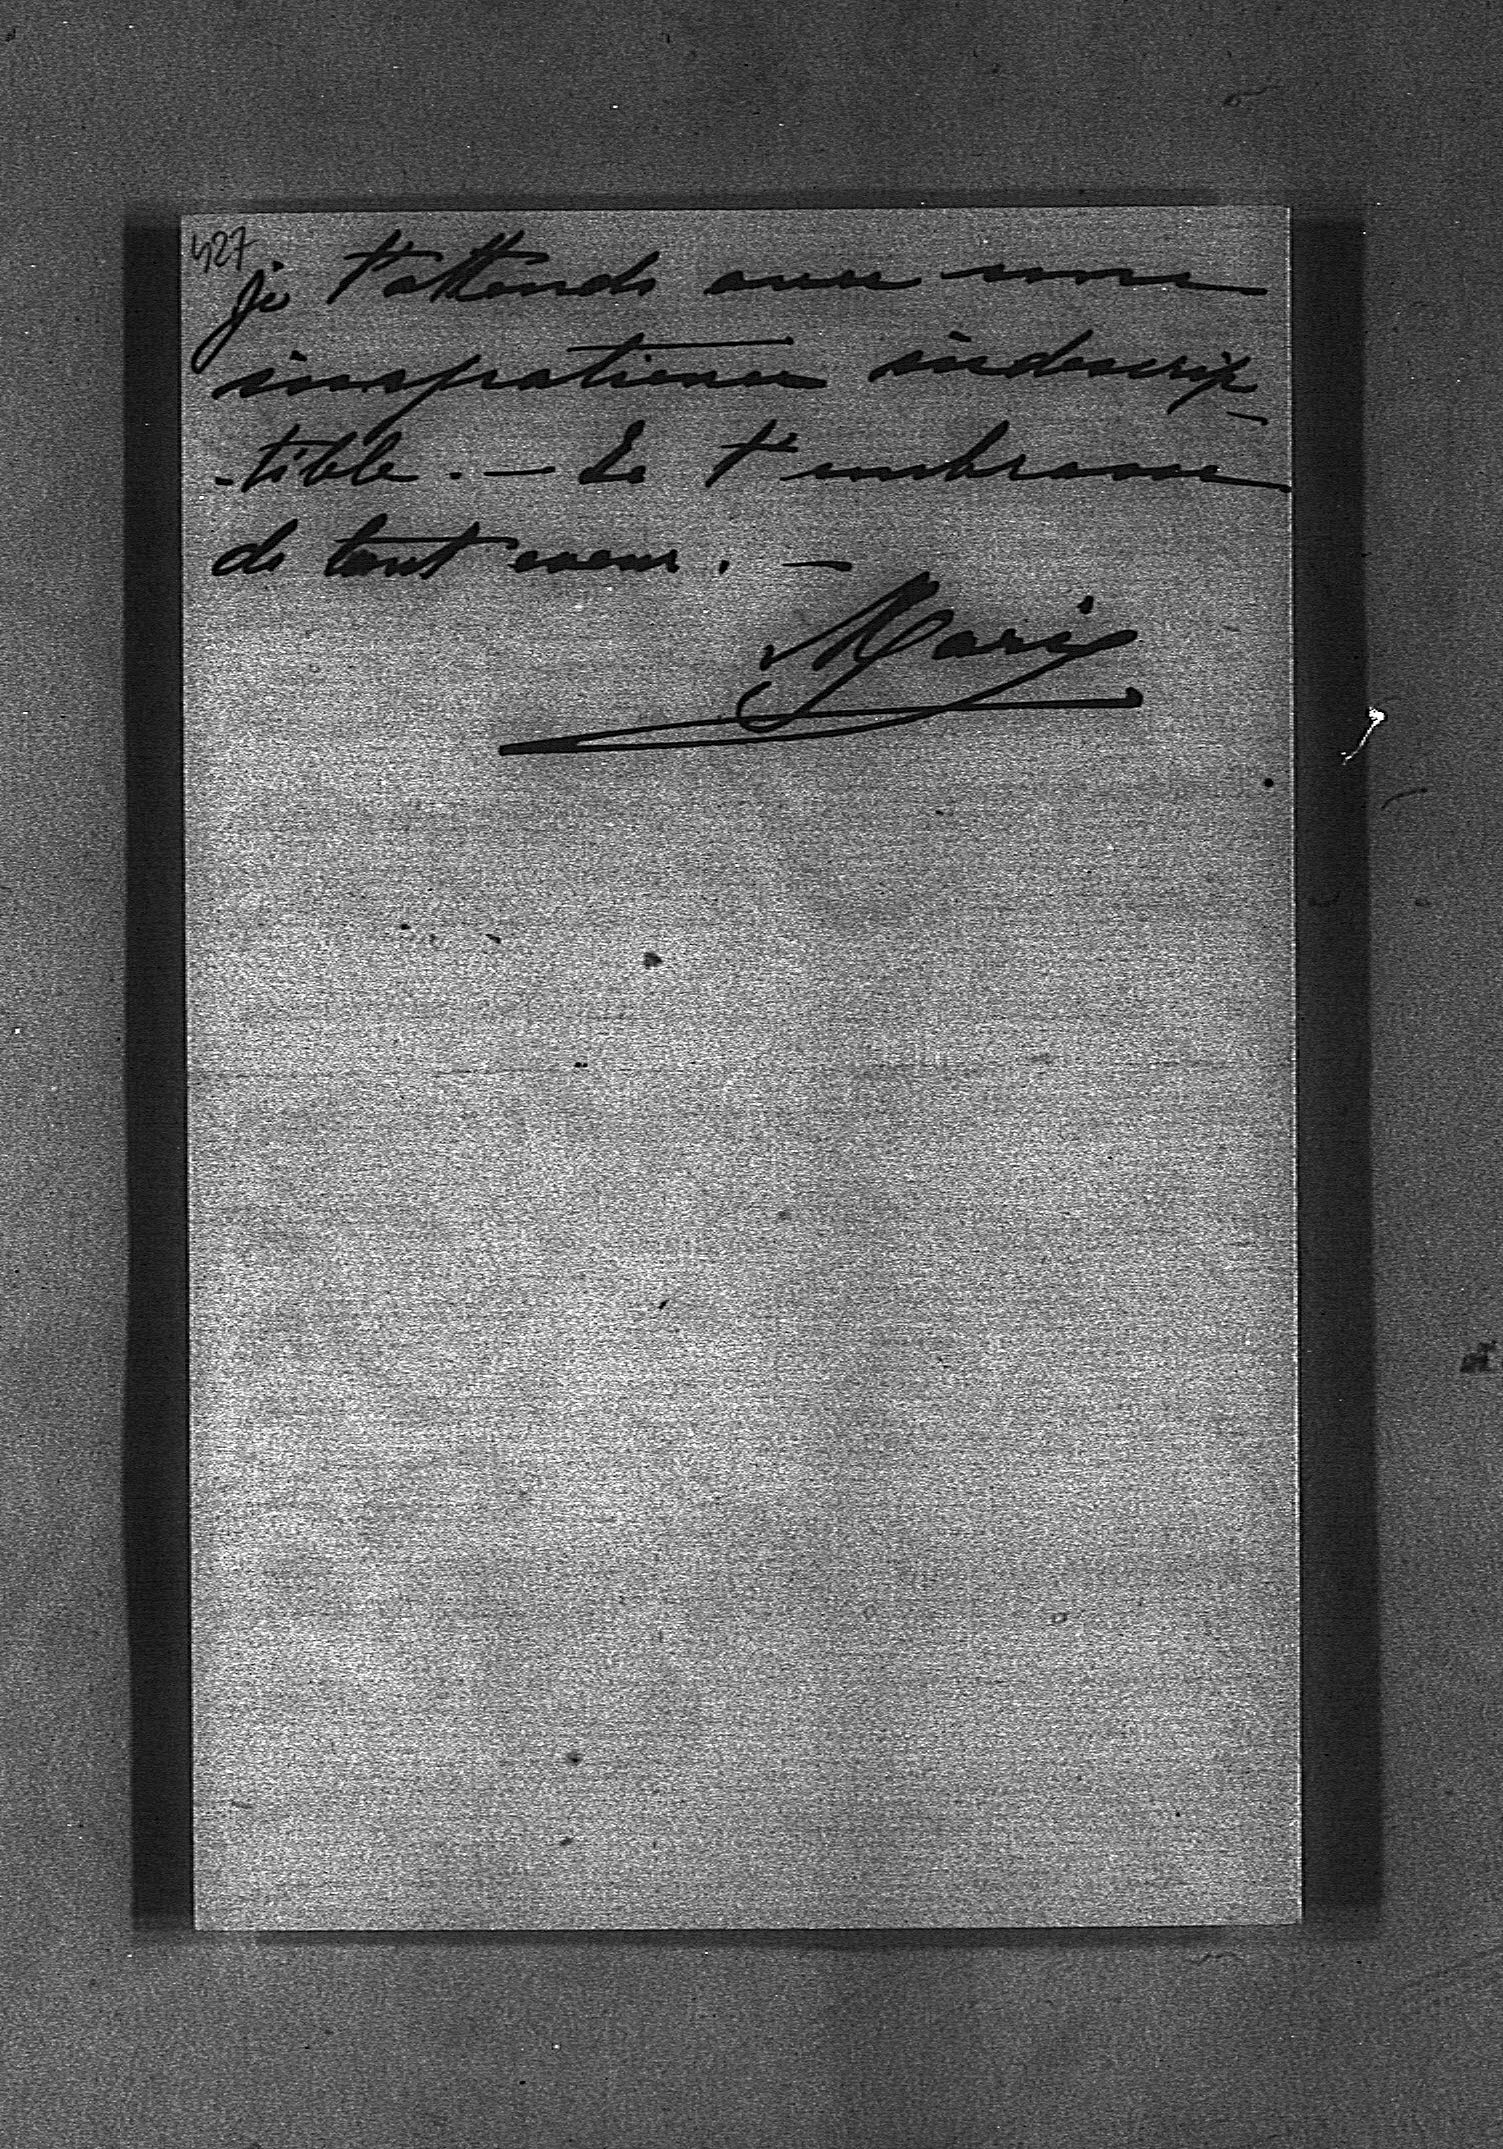 427
je t'attends avec une
impatience indescrip-
-tible. — Je t'embrasse
de tout coeur. —
Marie